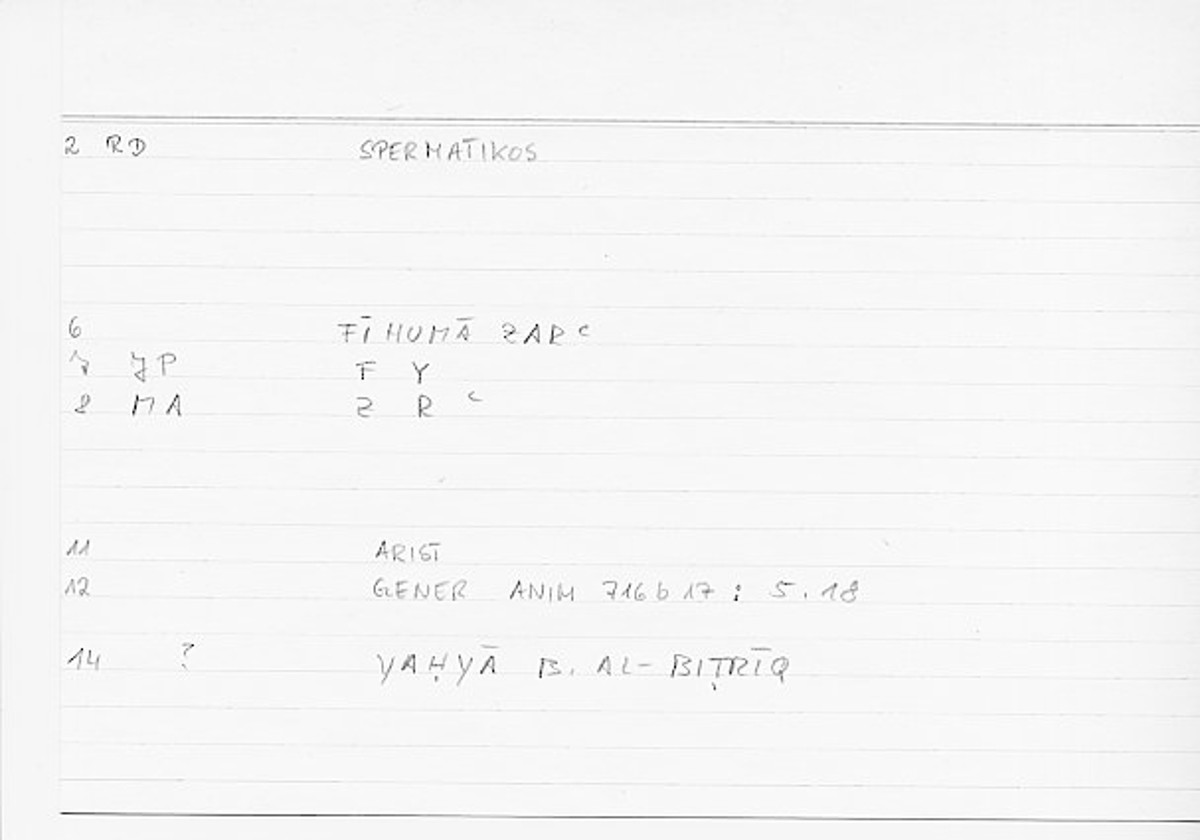 2 RD SPERMATIKOS
6 FĪHUMĀ ZARc
7 JP F Y
8 MA Z R c
11 ARIST
12 GENER ANIM 716b17 : 5.18
14 ? YAḤYĀ B. AL-BIṬRĪQ